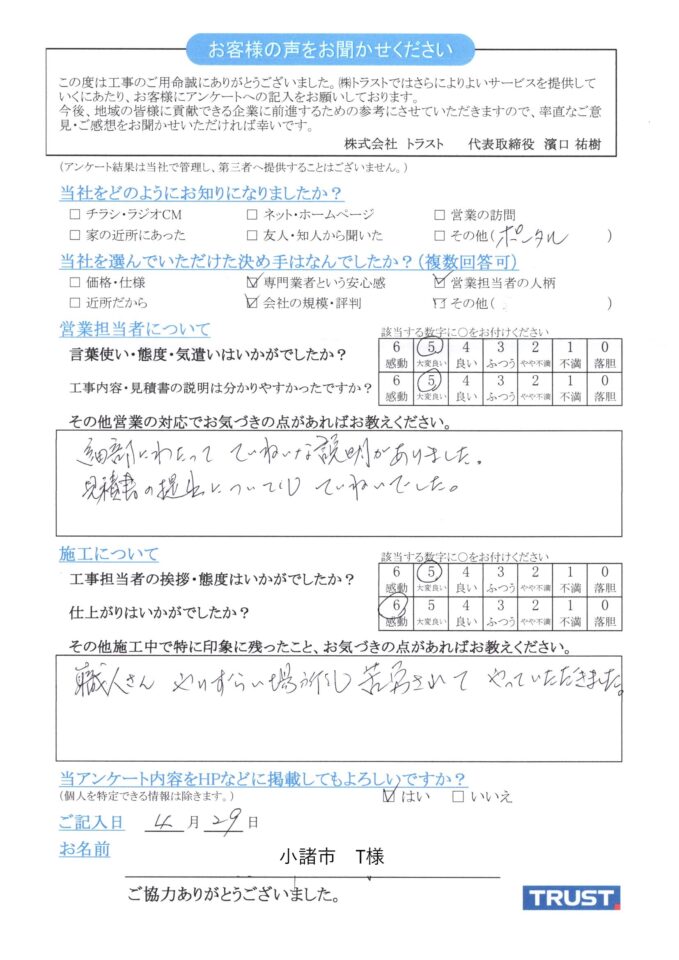 お客様の声をお聞かせください
この度は工事のご用命誠にありがとうございました。㈱トラストではさらによりよいサービスを提供して
いくにあたり、お客様にアンケートへの記入をお願いしております。
今後、地域の皆様に貢献できる企業に前進するための参考にさせていただきますので、率直なご意
見・ご感想をお聞かせいただければ幸いです。
株式会社 トラスト 代表取締役 濱口 祐樹
(アンケート結果は当社で管理し、第三者へ提供することはございません。)
当社をどのようにお知りになりましたか？
□ チラシ・ラジオCM □ ネット・ホームページ □ 営業の訪問
□ 家の近所にあった □ 友人・知人から聞いた □ その他( ポータル )
当社を選んでいただけた決め手はなんでしたか？(複数回答可)
□ 価格・仕様 ☑ 専門業者という安心感 ☑ 営業担当者の人柄
□ 近所だから ☑ 会社の規模・評判 □ その他( )
営業担当者について 該当する数字に○をお付けください
言葉使い・態度・気遣いはいかがでしたか？ 6 5 4 3 2 1 0
感動 大変良い 良い ふつう やや不満 不満 落胆
工事内容・見積書の説明は分かりやすかったですか？ 6 5 4 3 2 1 0
感動 大変良い 良い ふつう やや不満 不満 落胆
その他営業の対応でお気づきの点があればお教えください。
細部にわたって ていねいな説明がありました。
見積書の提出についても ていねいでした。
施工について 該当する数字に○をお付けください
工事担当者の挨拶・態度はいかがでしたか？ 6 5 4 3 2 1 0
感動 大変良い 良い ふつう やや不満 不満 落胆
仕上がりはいかがでしたか？ 6 5 4 3 2 1 0
感動 大変良い 良い ふつう やや不満 不満 落胆
その他施工中で特に印象に残ったこと、お気づきの点があればお教えください。
職人さん やりずらい場所も 苦労されて やっていただきました。
当アンケート内容をHPなどに掲載してもよろしいですか？
(個人を特定できる情報は除きます。) ☑ はい □ いいえ
ご記入日 4 月 29 日
お名前 小諸市 T様
ご協力ありがとうございました。
TRUST.